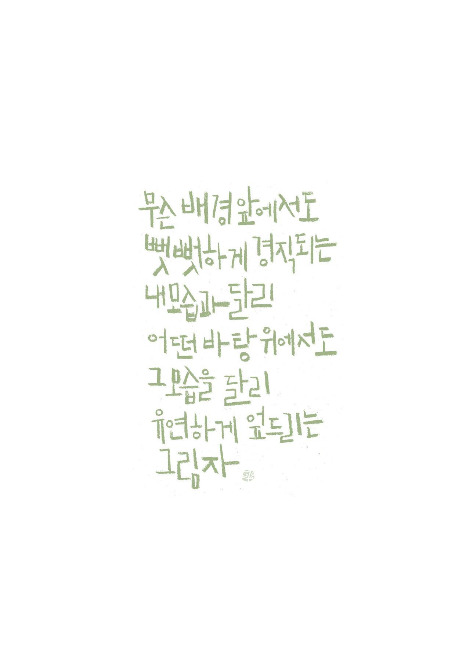 무슨 배경 앞에서도
뻣뻣하게 경직되는
내 모습과 달리
어떤 바탕 위에서도
그 모습을 달리
유연하게 엎드리는
그림자